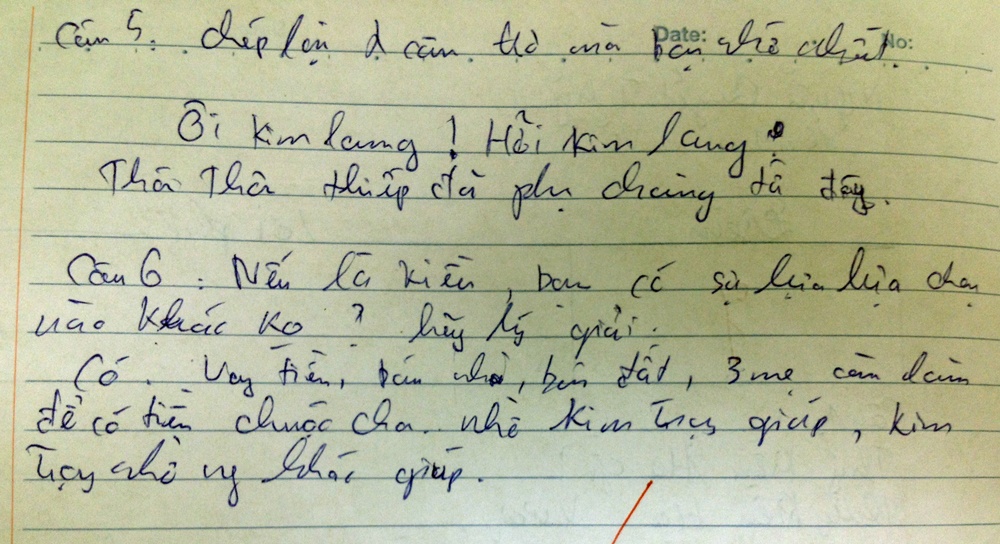 Câu 5: chép lại 2 câu thơ mà bạn nhớ nhất.
Date: No:
Ôi Kim lang! Hỡi Kim lang!
Thôi Thôi thiếp đã phụ chàng từ đây.
Câu 6: Nếu là Kiều, bạn có sự lựa lựa chọn
nào khác ko? hãy lý giải.
Có. Vay tiền, bán nhà, bán đất, 3 mẹ con làm
để có tiền chuộc cha. nhờ Kim Trọng giúp, Kim
Trọng nhờ ng khác giúp.